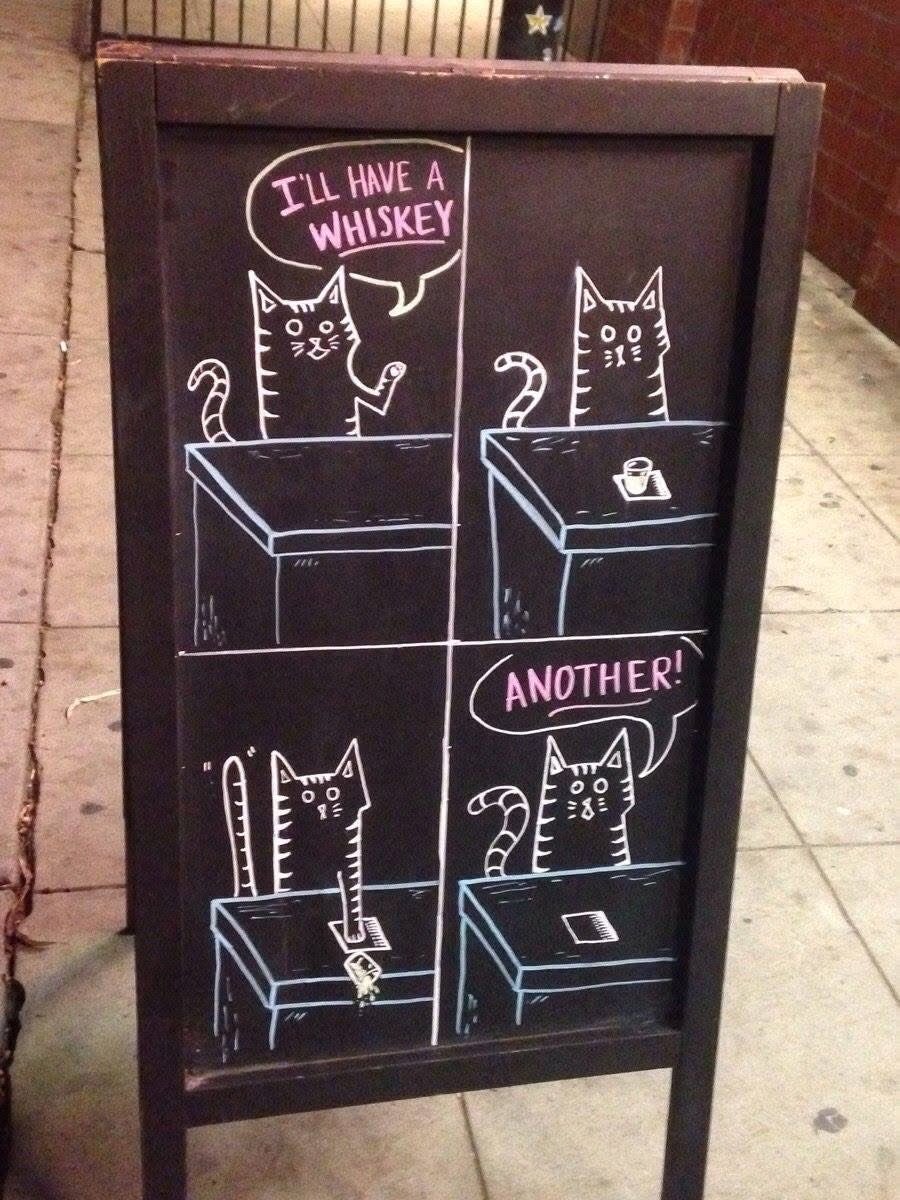 I'LL HAVE A
WHISKEY
ANOTHER!